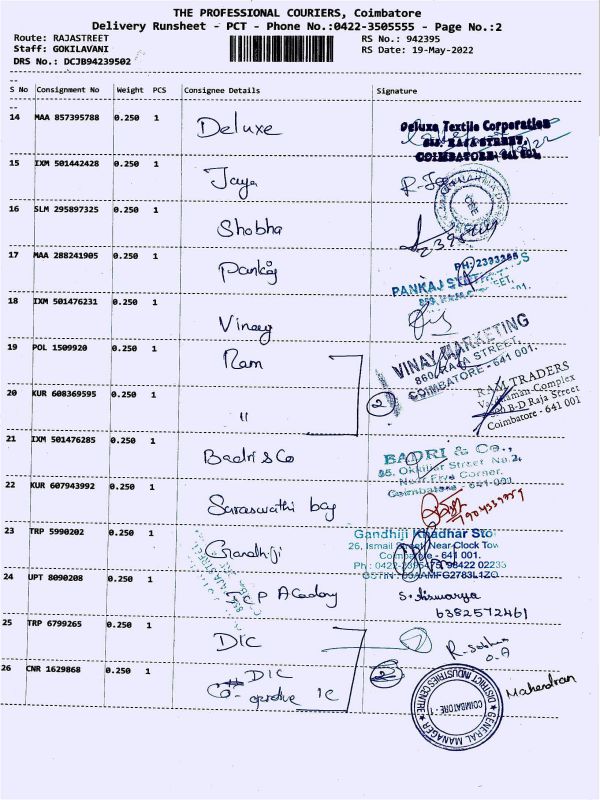 THE PROFESSIONAL COURIERS, Coimbatore
Delivery Runsheet - PCT - Phone No.:0422-3505555 - Page No.:2
Route: RAJASTREET
RS No.: 942395
Staff: GOKILAVANI
RS Date: 19-May-2022
DRS No.: DCJB94239502
S No Consignment No Weight PCS Consignee Details Signature
14 MAA 857395788 0.250 1 Deluxe
Deluxe Textile Corporation
RAJA STREET,
COIMBATORE- 641 001.
15 IXM 501442428 0.250 1 Jaya
16 SLM 295897325 0.250 1 Shobha
17 MAA 288241905 0.250 1 Pankaj
PH: 2393365
PANKAJ
18 IXM 501476231 0.250 1 Vinay
VINAY MARKETING
860, RAJA STREET,
COIMBATORE - 641 001.
19 POL 1509920 0.250 1 Ram
20 KUR 608369595 0.250 1 "
2
RAM TRADERS
Vardhaman Complex
B-D Raja Street
Coimbatore - 641 001
21 IXM 501476285 0.250 1 Badri & Co
BADRI & Co.,
Street No.2,
Near Five Corner,
Coimbatore - 641-001
22 KUR 607943992 0.250 1 Saraswathi bag
23 TRP 5990202 0.250 1 Gandhiji
Gandhiji Khadhar Sto
26, Ismail Street, Near Clock Tow
Coimbatore - 641 001.
Ph : 0422-2395475, 98422 02233
24 UPT 8090208 0.250 1 CP Academy
6382572461
25 TRP 6799265 0.250 1 DIC
26 CNR 1629868 0.250 1 DIC
Co-operative IC
2
Mahendran
GENERAL MANAGER
DISTRICT INDUSTRIES CENTRE
COIMBATORE - 1